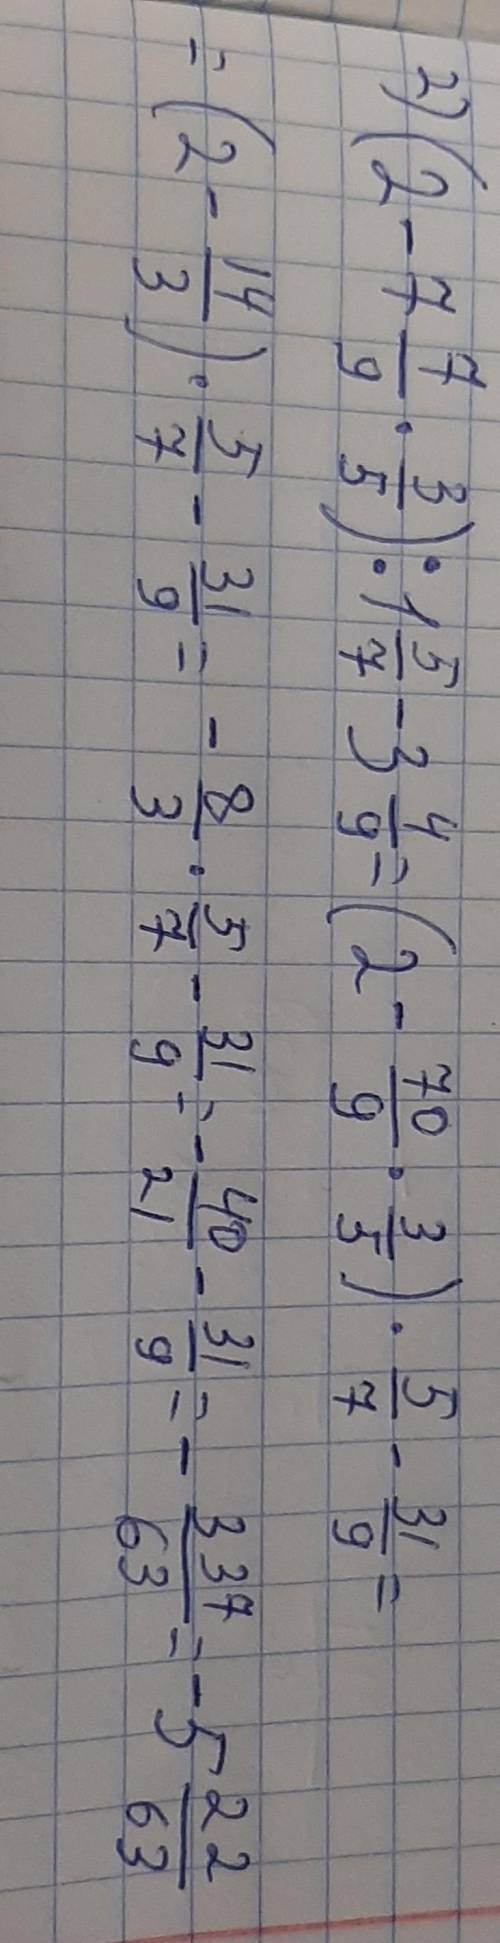 2) (2 - 7 7/9 · 3/5) : 1 5/7 - 3 4/9 = (2 - 70/9 · 3/5) · 5/7 - 31/9 =
= (2 - 14/3) · 5/7 - 31/9 = - 8/3 · 5/7 - 31/9 = - 40/21 - 31/9 = - 337/63 = - 5 22/63